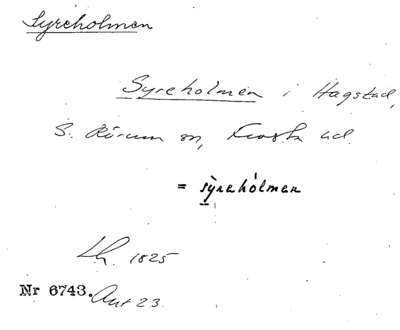 Syreholmen
Syreholmen i Hagstad,
S. Rörum sn, Frosta hd.
= sỳrehólmen
Lh. 1825
Nr 6743. Ant 23.